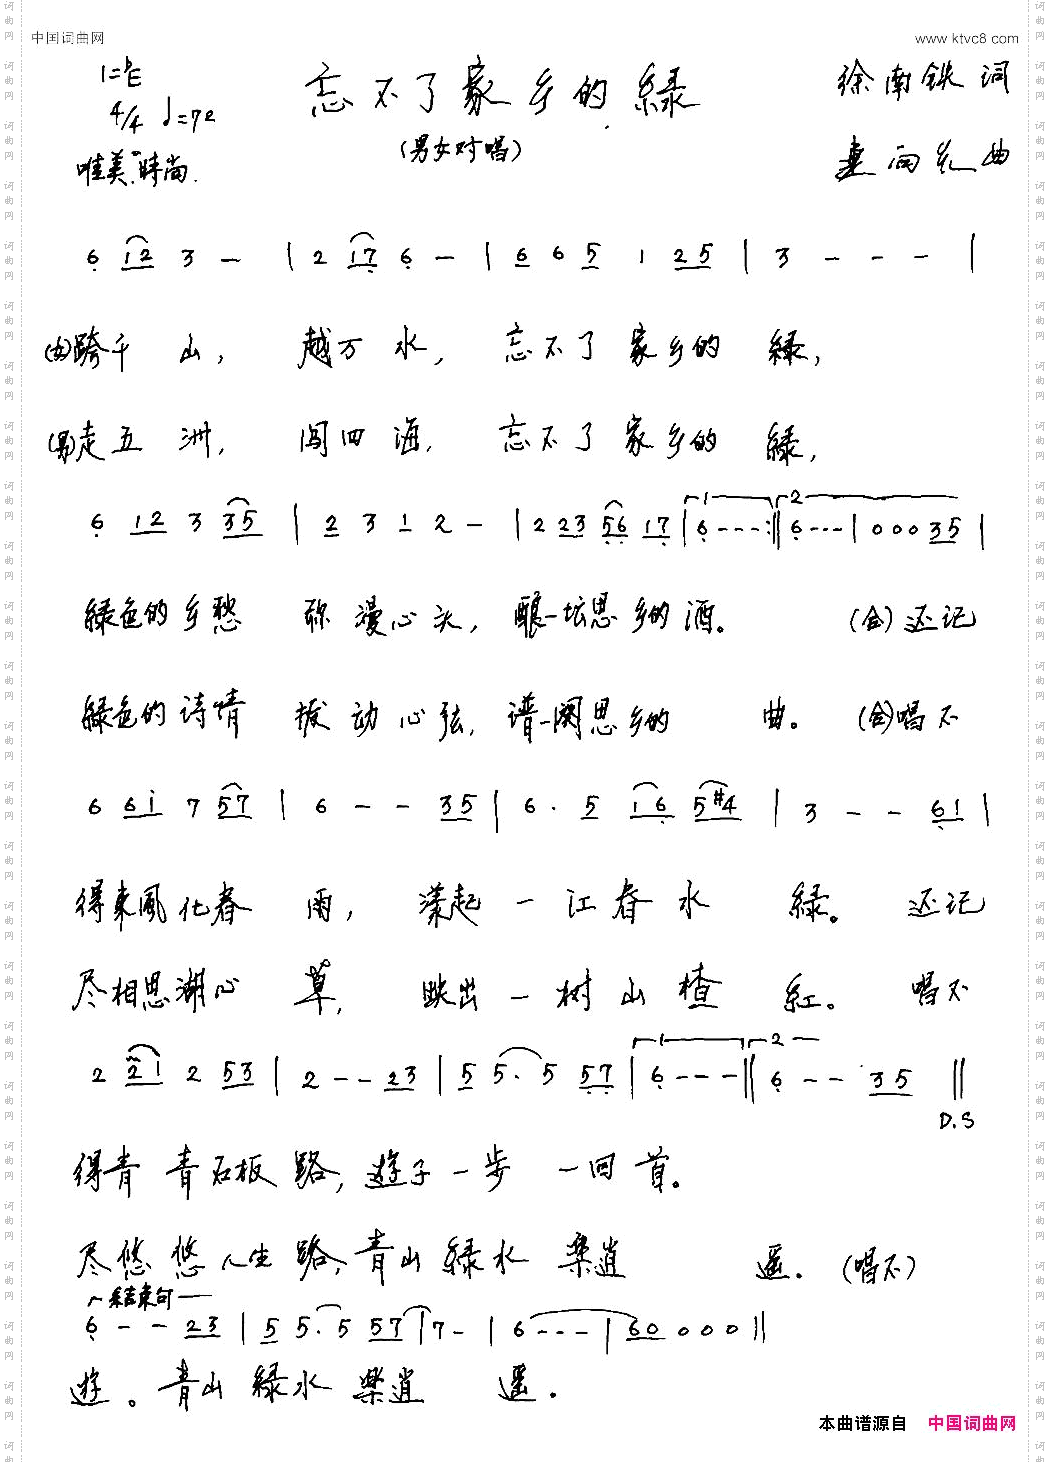 中国词曲网 www.ktvc8.com
1=♭E 忘不了家乡的緑 徐南铁 词
4/4 ♩=72 (男女对唱)
唯美、時尚. 曲
6 12 3 - | 2 17 6 - | 6 6 5 1 25 | 3 - - - |
(女)跨千山, 越万水, 忘不了家乡的緑,
(男)走五洲, 闯四海, 忘不了家乡的緑,
6 12 3 35 | 2 3 1 2 - | 2 23 56 17 | 1 6 - - - :|| 2 6 - - - | 0 0 0 35 |
緑色的乡愁 弥漫心头, 酿一坛思乡的酒。 (合)还记
緑色的诗情 拨动心弦, 谱一阕思乡的曲。 (合)唱不
6 61 7 57 | 6 - - 35 | 6. 5 16 5#4 | 3 - - 61 |
得東風化春雨, 漾起一江春水緑。 还记
尽相思湖心草, 映出一树山楂紅。 唱不
2 21 2 53 | 2 - - 23 | 5 5. 5 57 | 1 6 - - - || 2 6 - - 35 ||
D.S
得青青石板路, 遊子一步一回首。
尽悠悠人生路, 青山緑水楽逍遥。 (唱不)
結束句
6 - - 23 | 5 5. 5 57 | 7 - | 6 - - - | 60 0 0 0 ||
遊。青山緑水楽逍遥.
本曲谱源自 中国词曲网